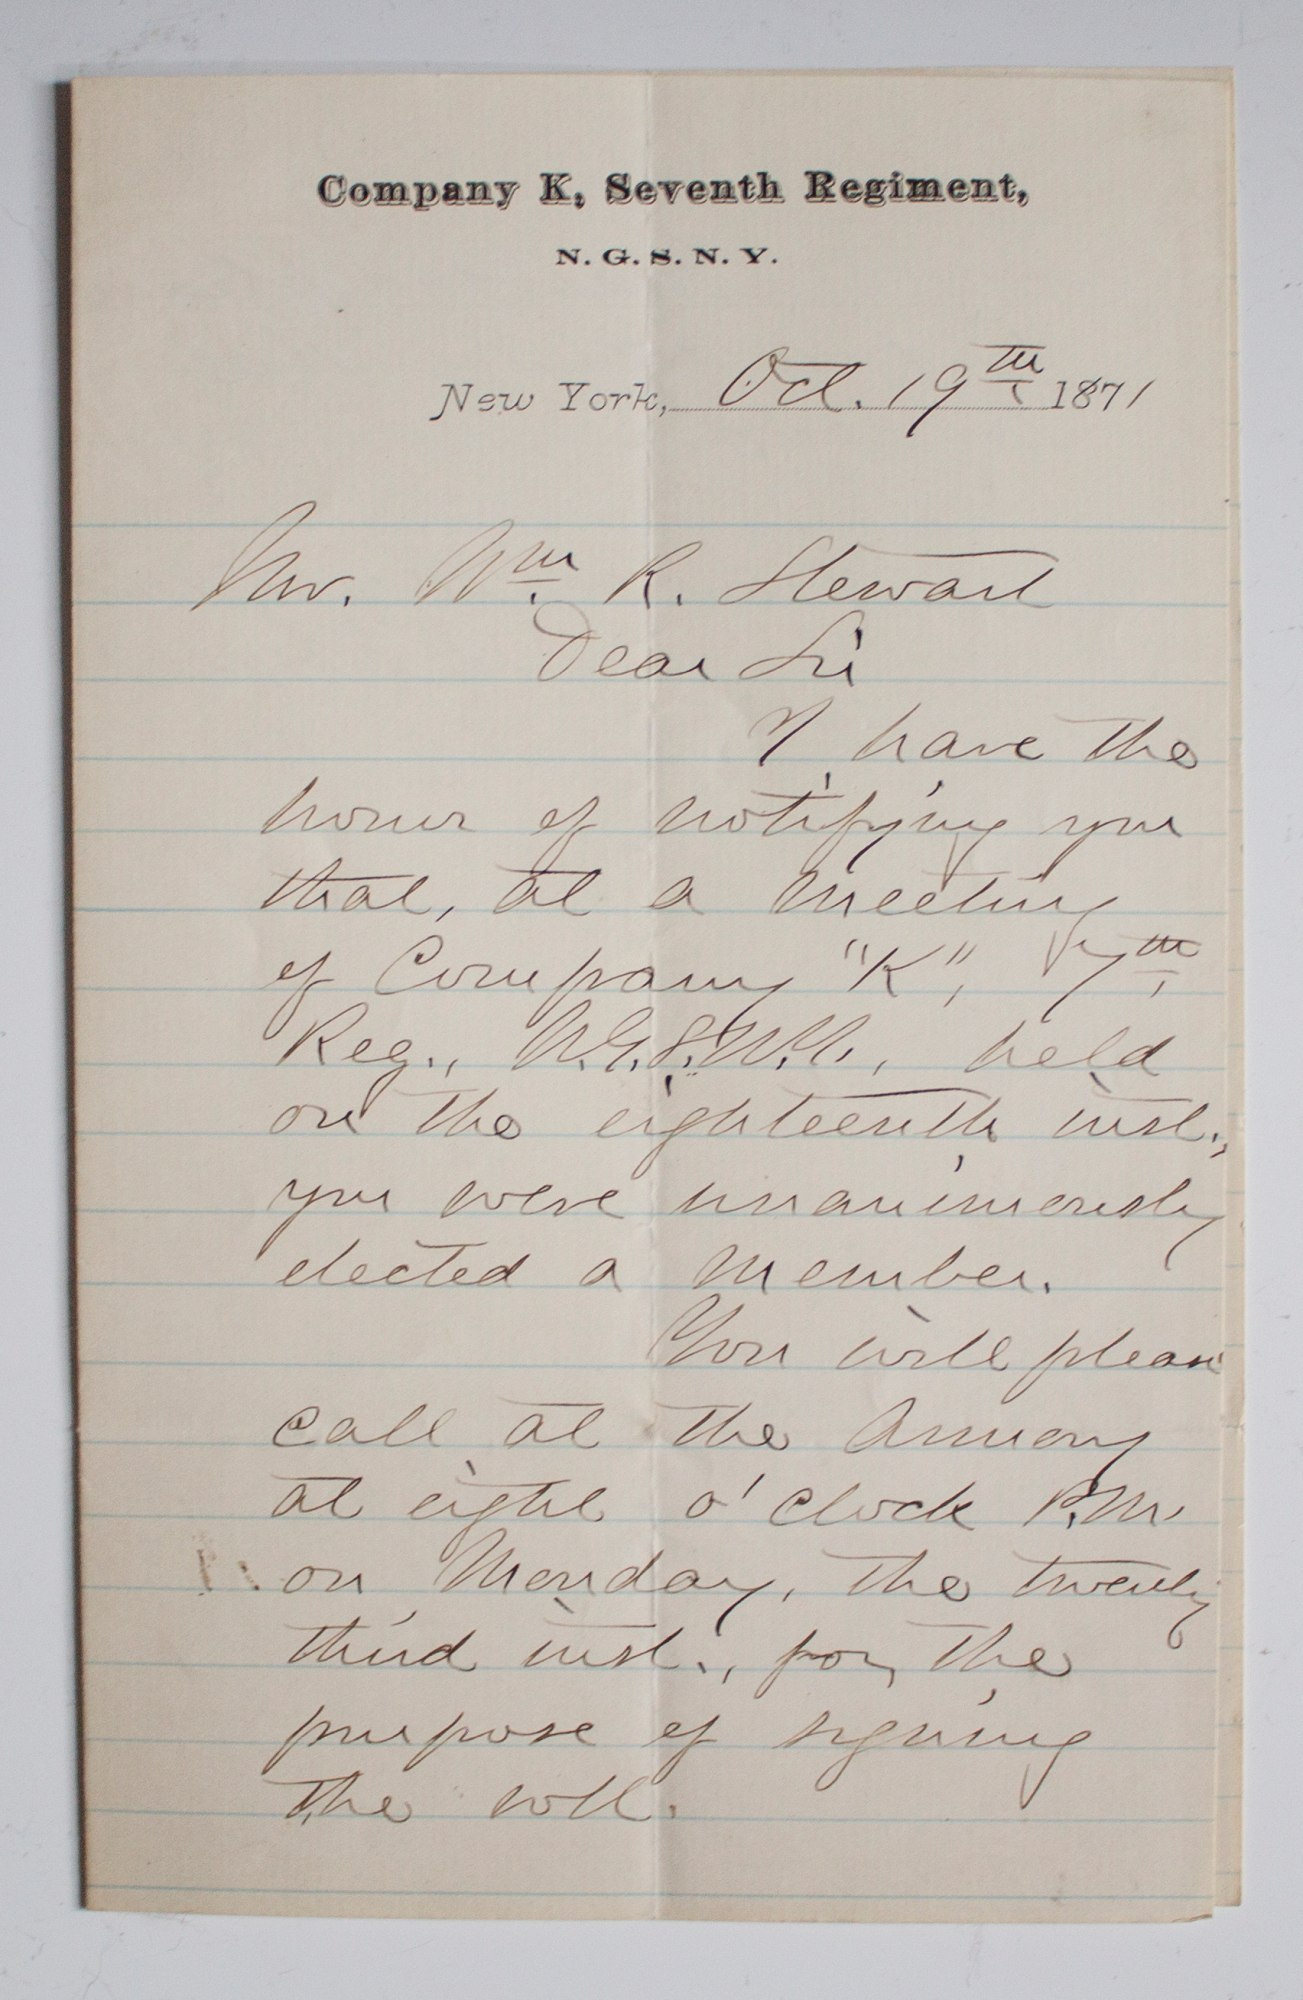 Company K, Seventh Regiment,
N. G. S. N. Y.
New York, Oct. 19th 1871
Mr. Wm. R. Stewart
Dear Sir
I have the
honor of notifying you
that, at a meeting
of Company "K", 7th
Reg., N.G.S.N.Y., held
on the eighteenth inst.,
you were unanimously
elected a member.
You will please
call at the Armory
at eight o'clock P.M.
on Monday, the twenty
third inst., for the
purpose of signing
the roll.